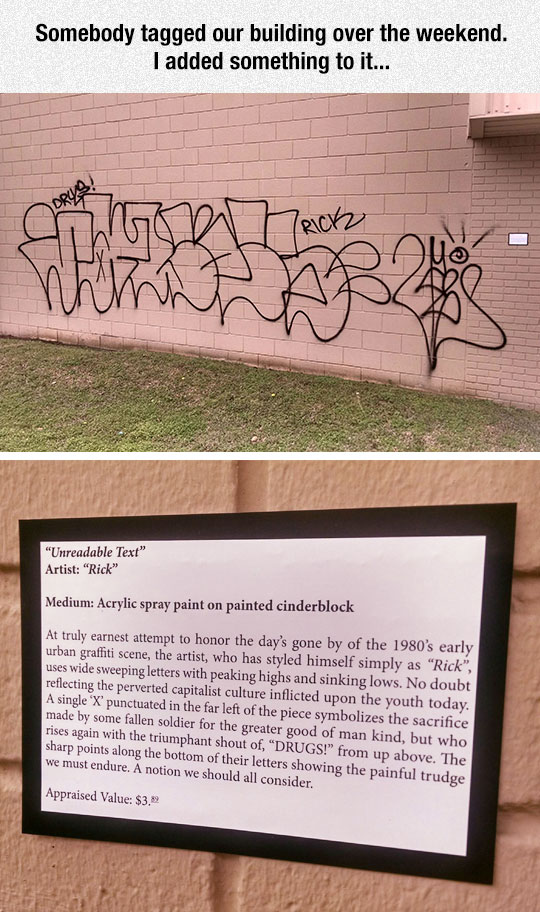 Somebody tagged our building over the weekend.
I added something to it...
DRUGS!
RICK
"Unreadable Text"
Artist: "Rick"
Medium: Acrylic spray paint on painted cinderblock
At truly earnest attempt to honor the day's gone by of the 1980's early
urban graffiti scene, the artist, who has styled himself simply as "Rick",
uses wide sweeping letters with peaking highs and sinking lows. No doubt
reflecting the perverted capitalist culture inflicted upon the youth today.
A single 'X' punctuated in the far left of the piece symbolizes the sacrifice
made by some fallen soldier for the greater good of man kind, but who
rises again with the triumphant shout of, "DRUGS!" from up above. The
sharp points along the bottom of their letters showing the painful trudge
we must endure. A notion we should all consider.
Appraised Value: $3.89